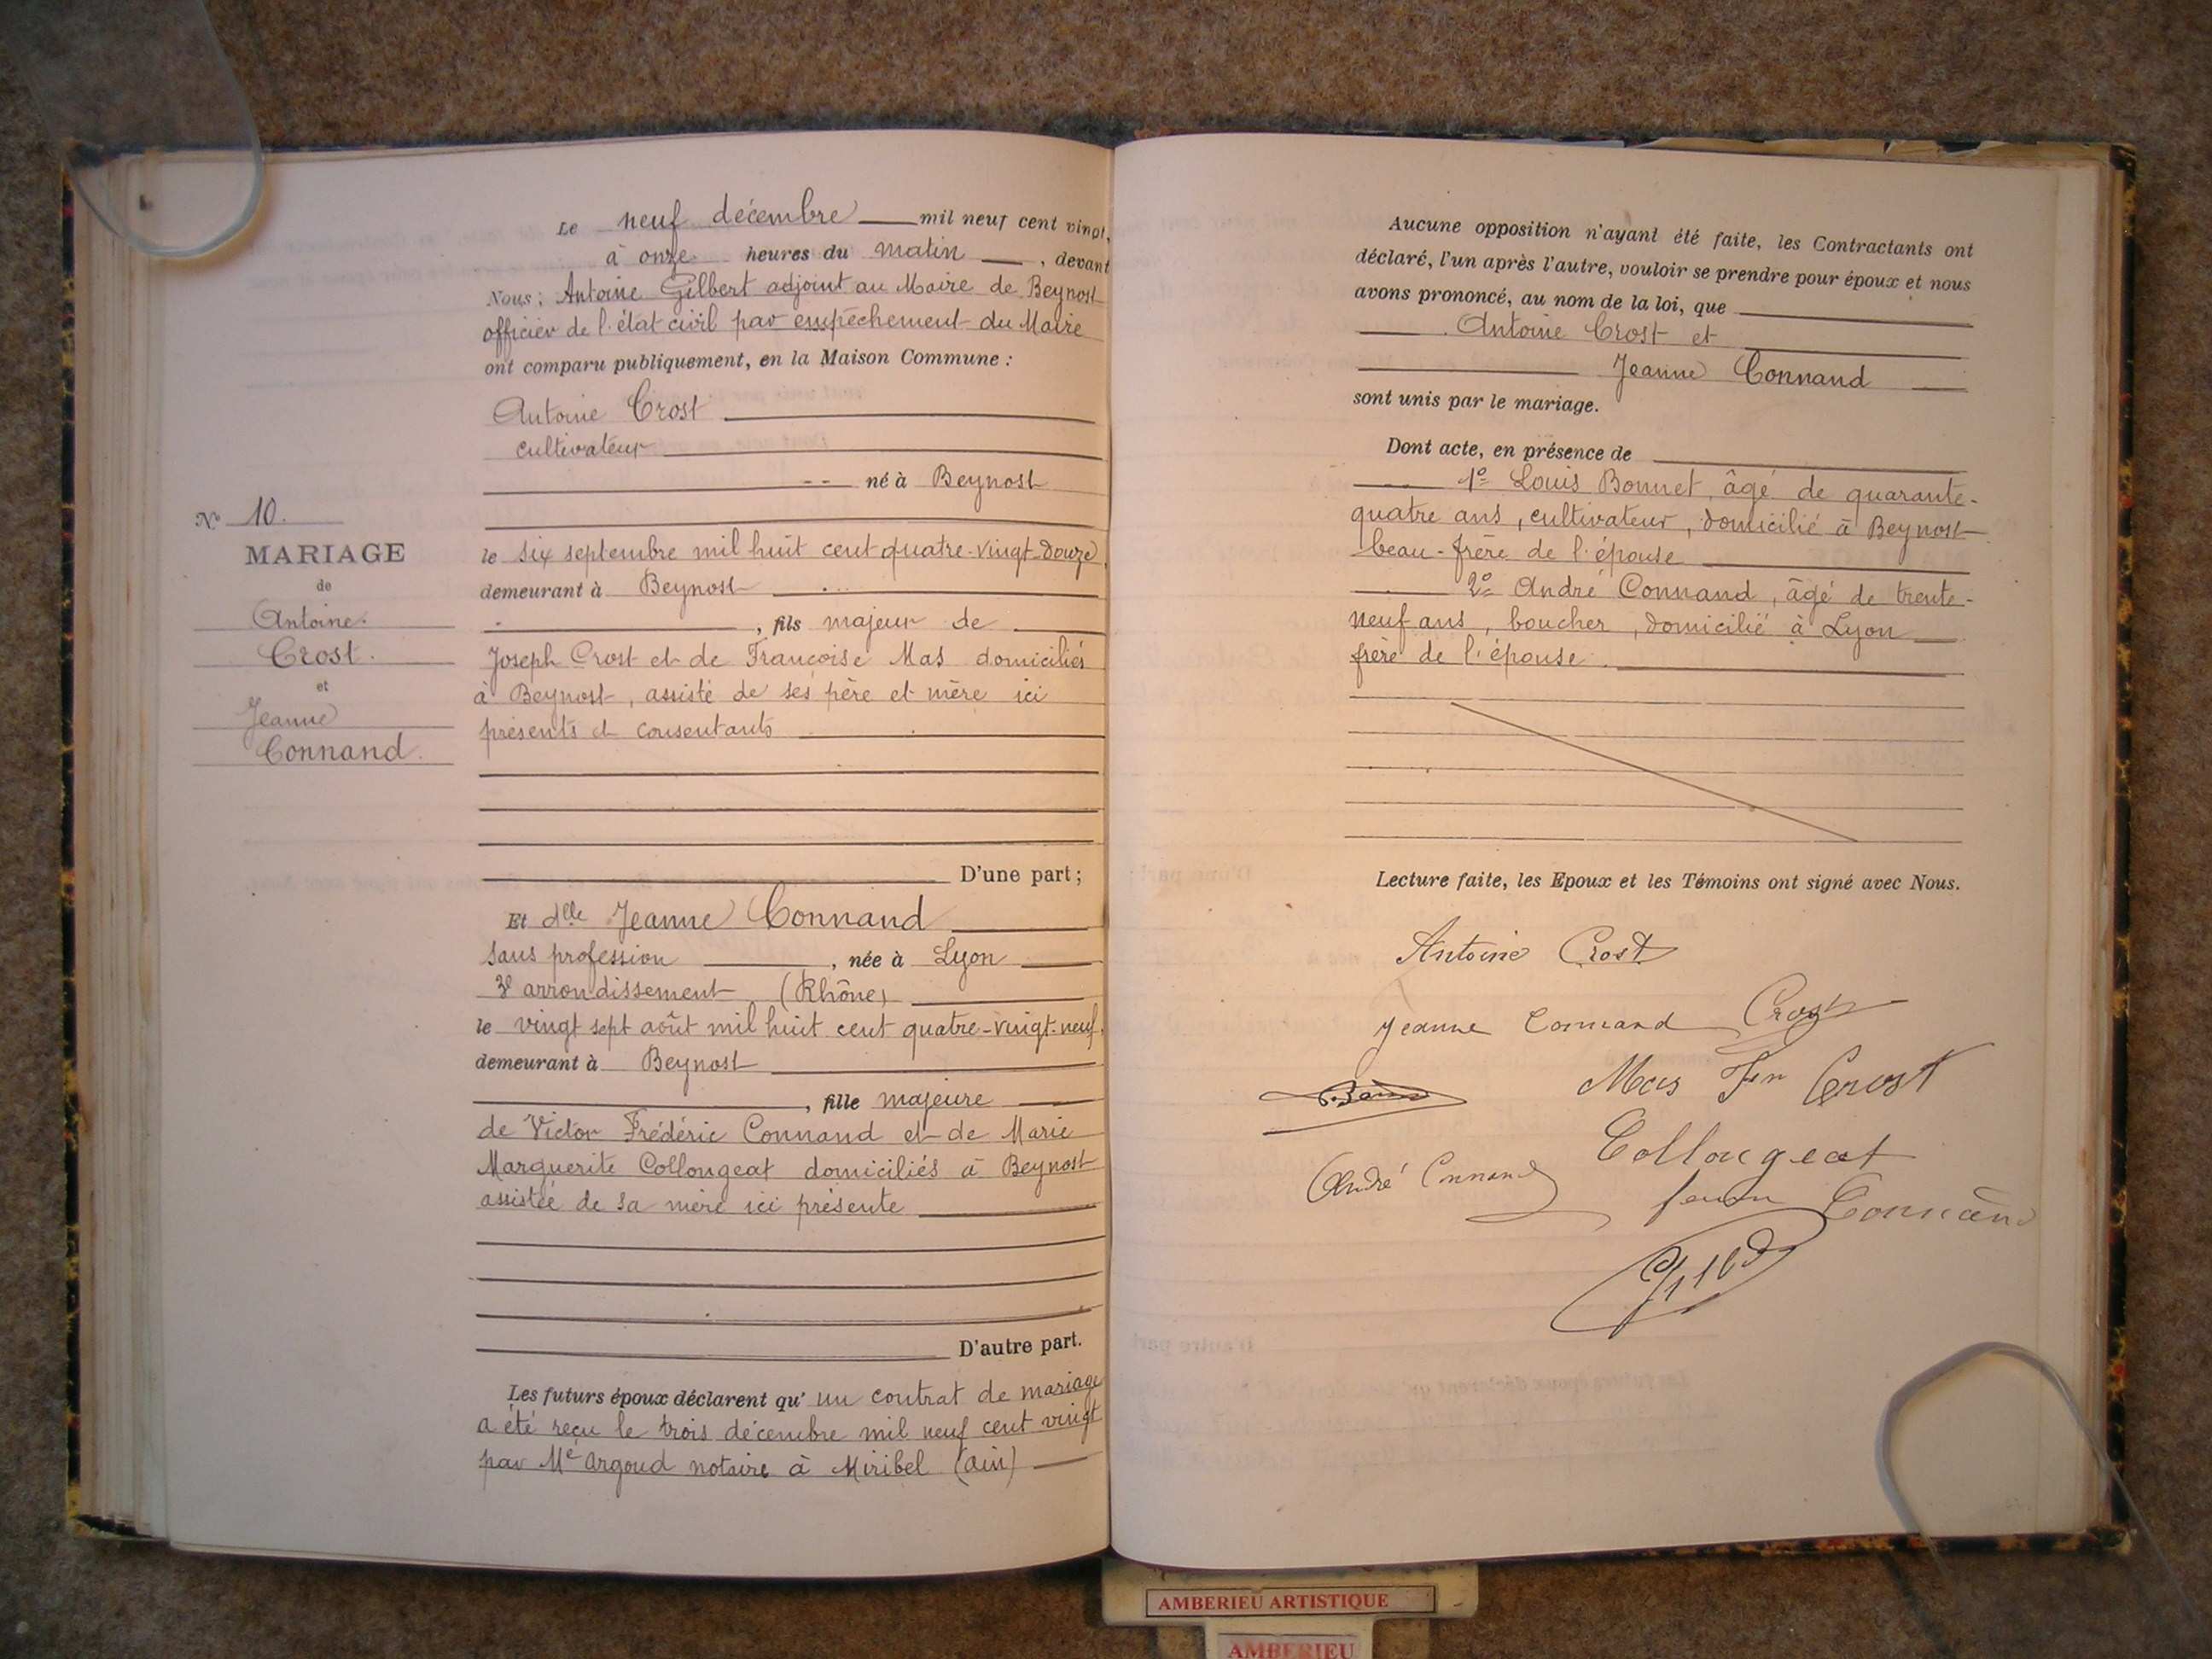 Le neuf décembre mil neuf cent vingt,
à onze heures du matin, devant
Nous : Antoine Gilbert adjoint au Maire de Beynost
officier de l'état civil par empêchement du Maire
ont comparu publiquement, en la Maison Commune :
Antoine Crost
cultivateur
né à Beynost
N° 10.
MARIAGE
de
Antoine
Crost.
et
Jeanne
Connand.
le six septembre mil huit cent quatre-vingt-douze,
demeurant à Beynost
, fils majeur de
Joseph Crost et de Françoise Mas domiciliés
à Beynost, assisté de ses père et mère ici
présents et consentants
D'une part ;
Et dlle Jeanne Connand
sans profession, née à Lyon
3e arrondissement (Rhône)
le vingt sept août mil huit cent quatre-vingt-neuf,
demeurant à Beynost
, fille majeure
de Victor Frédéric Connand et de Marie
Marguerite Collongeat domiciliés à Beynost
assistée de sa mère ici présente
D'autre part.
Les futurs époux déclarent qu' un contrat de mariage
a été reçu le trois décembre mil neuf cent vingt
par Me Argoud notaire à Miribel (Ain)
Aucune opposition n'ayant été faite, les Contractants ont
déclaré, l'un après l'autre, vouloir se prendre pour époux et nous
avons prononcé, au nom de la loi, que
Antoine Crost et
Jeanne Connand
sont unis par le mariage.
Dont acte, en présence de
1° Louis Bonnet, âgé de quarante-
quatre ans, cultivateur, domicilié à Beynost
beau-frère de l'épouse
2° André Connand, âgé de trente-
neuf ans, boucher, domicilié à Lyon
frère de l'épouse.
Lecture faite, les Epoux et les Témoins ont signé avec Nous.
Antoine Crost
Jeanne Connand Crost
Mas Fen Crost
Collongeat
André Connand
Connand
AMBERIEU ARTISTIQUE
AMBERIEU